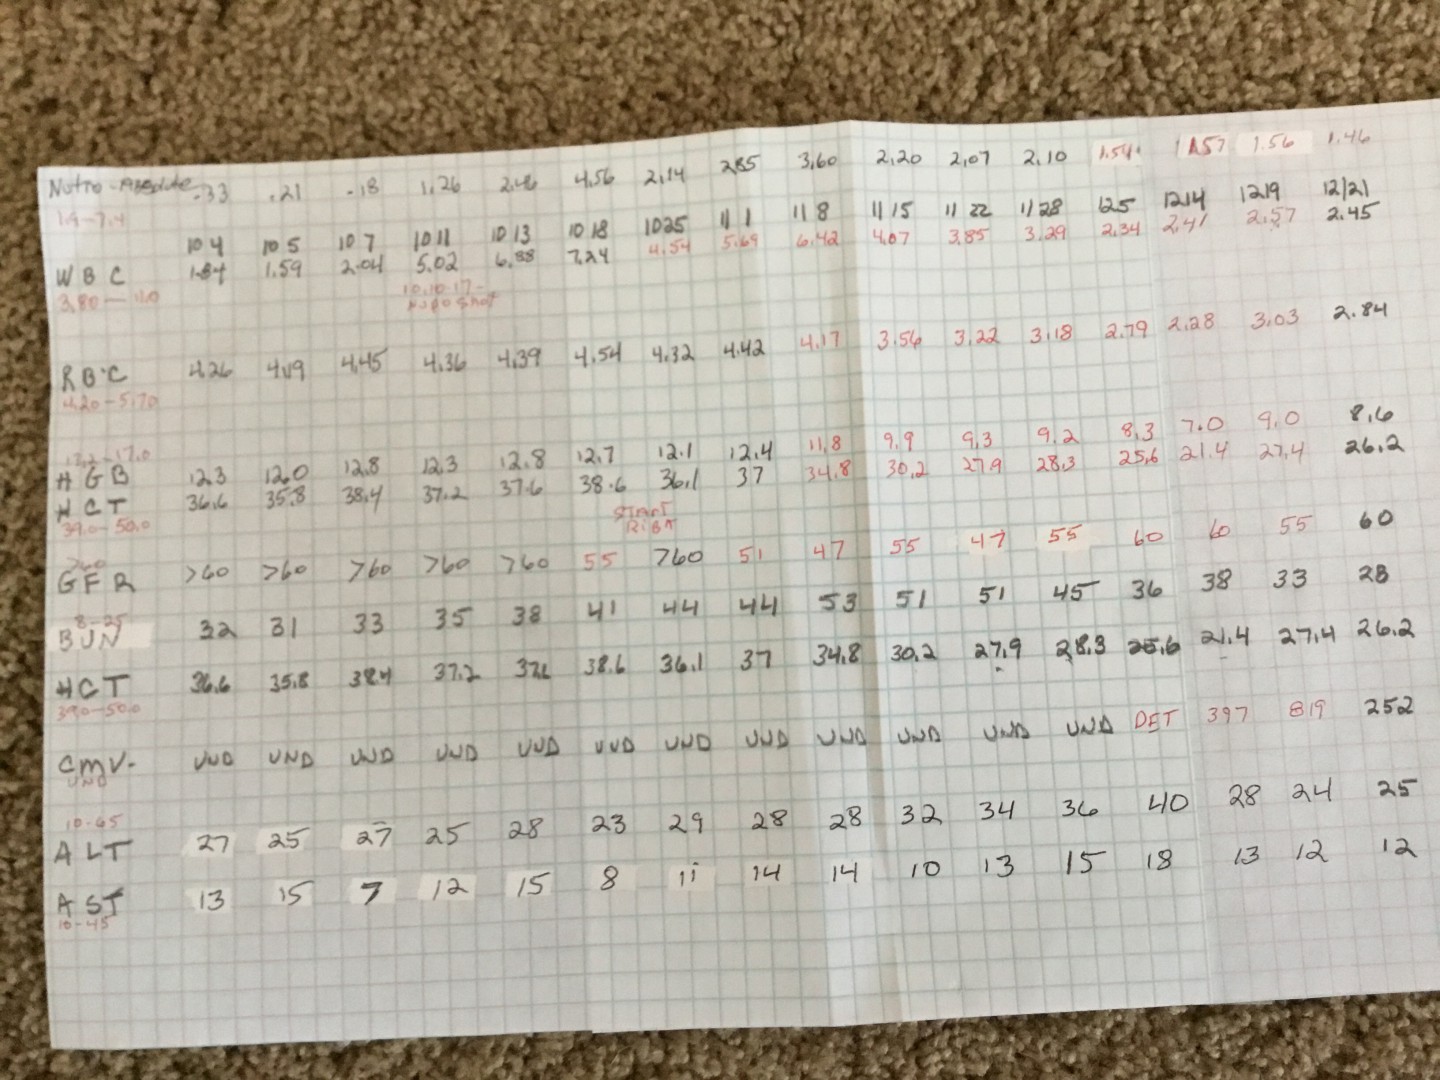 Nutro-Absolute .33 .21 .18 1.26 2.46 4.56 2.14 2.85 3.60 2.20 2.07 2.10 1.54 1.57 1.56 1.46
1.9-7.4
10 4 10 5 10 7 10 11 10 13 10 18 10 25 11 1 11 8 11 15 11 22 11/28 12 5 12 14 12 19 12/21
WBC 1.84 1.59 2.04 5.02 6.88 7.24 4.54 5.69 6.42 4.07 3.85 3.29 2.34 2.41 2.57 2.45
3.80-11.0
10.10.17-
Nupo Shot
RBC 4.26 4.19 4.45 4.36 4.39 4.54 4.32 4.42 4.17 3.56 3.22 3.18 2.79 2.28 3.03 2.84
4.20-5.70
13.2-17.0
HGB 12.3 12.0 12.8 12.3 12.8 12.7 12.1 12.4 11.8 9.9 9.3 9.2 8.3 7.0 9.0 8.6
HCT 36.6 35.8 38.4 37.2 37.6 38.6 36.1 37 34.8 30.2 27.9 28.3 25.6 21.4 27.4 26.2
39.0-50.0
START
RIBA
>60
GFR >60 >60 >60 >60 >60 55 >60 51 47 55 47 55 60 60 55 60
8-25
BUN 32 31 33 35 38 41 44 44 53 51 51 45 36 38 33 28
HCT 36.6 35.8 38.4 37.2 37.6 38.6 36.1 37 34.8 30.2 27.9 28.3 25.6 21.4 27.4 26.2
39.0-50.0
CMV- UND UND UND UND UND UND UND UND UND UND UND UND DET 397 819 252
UND
10-65
ALT 27 25 27 25 28 23 29 28 28 32 34 36 40 28 24 25
AST 13 15 7 12 15 8 11 14 14 10 13 15 18 13 12 12
10-45